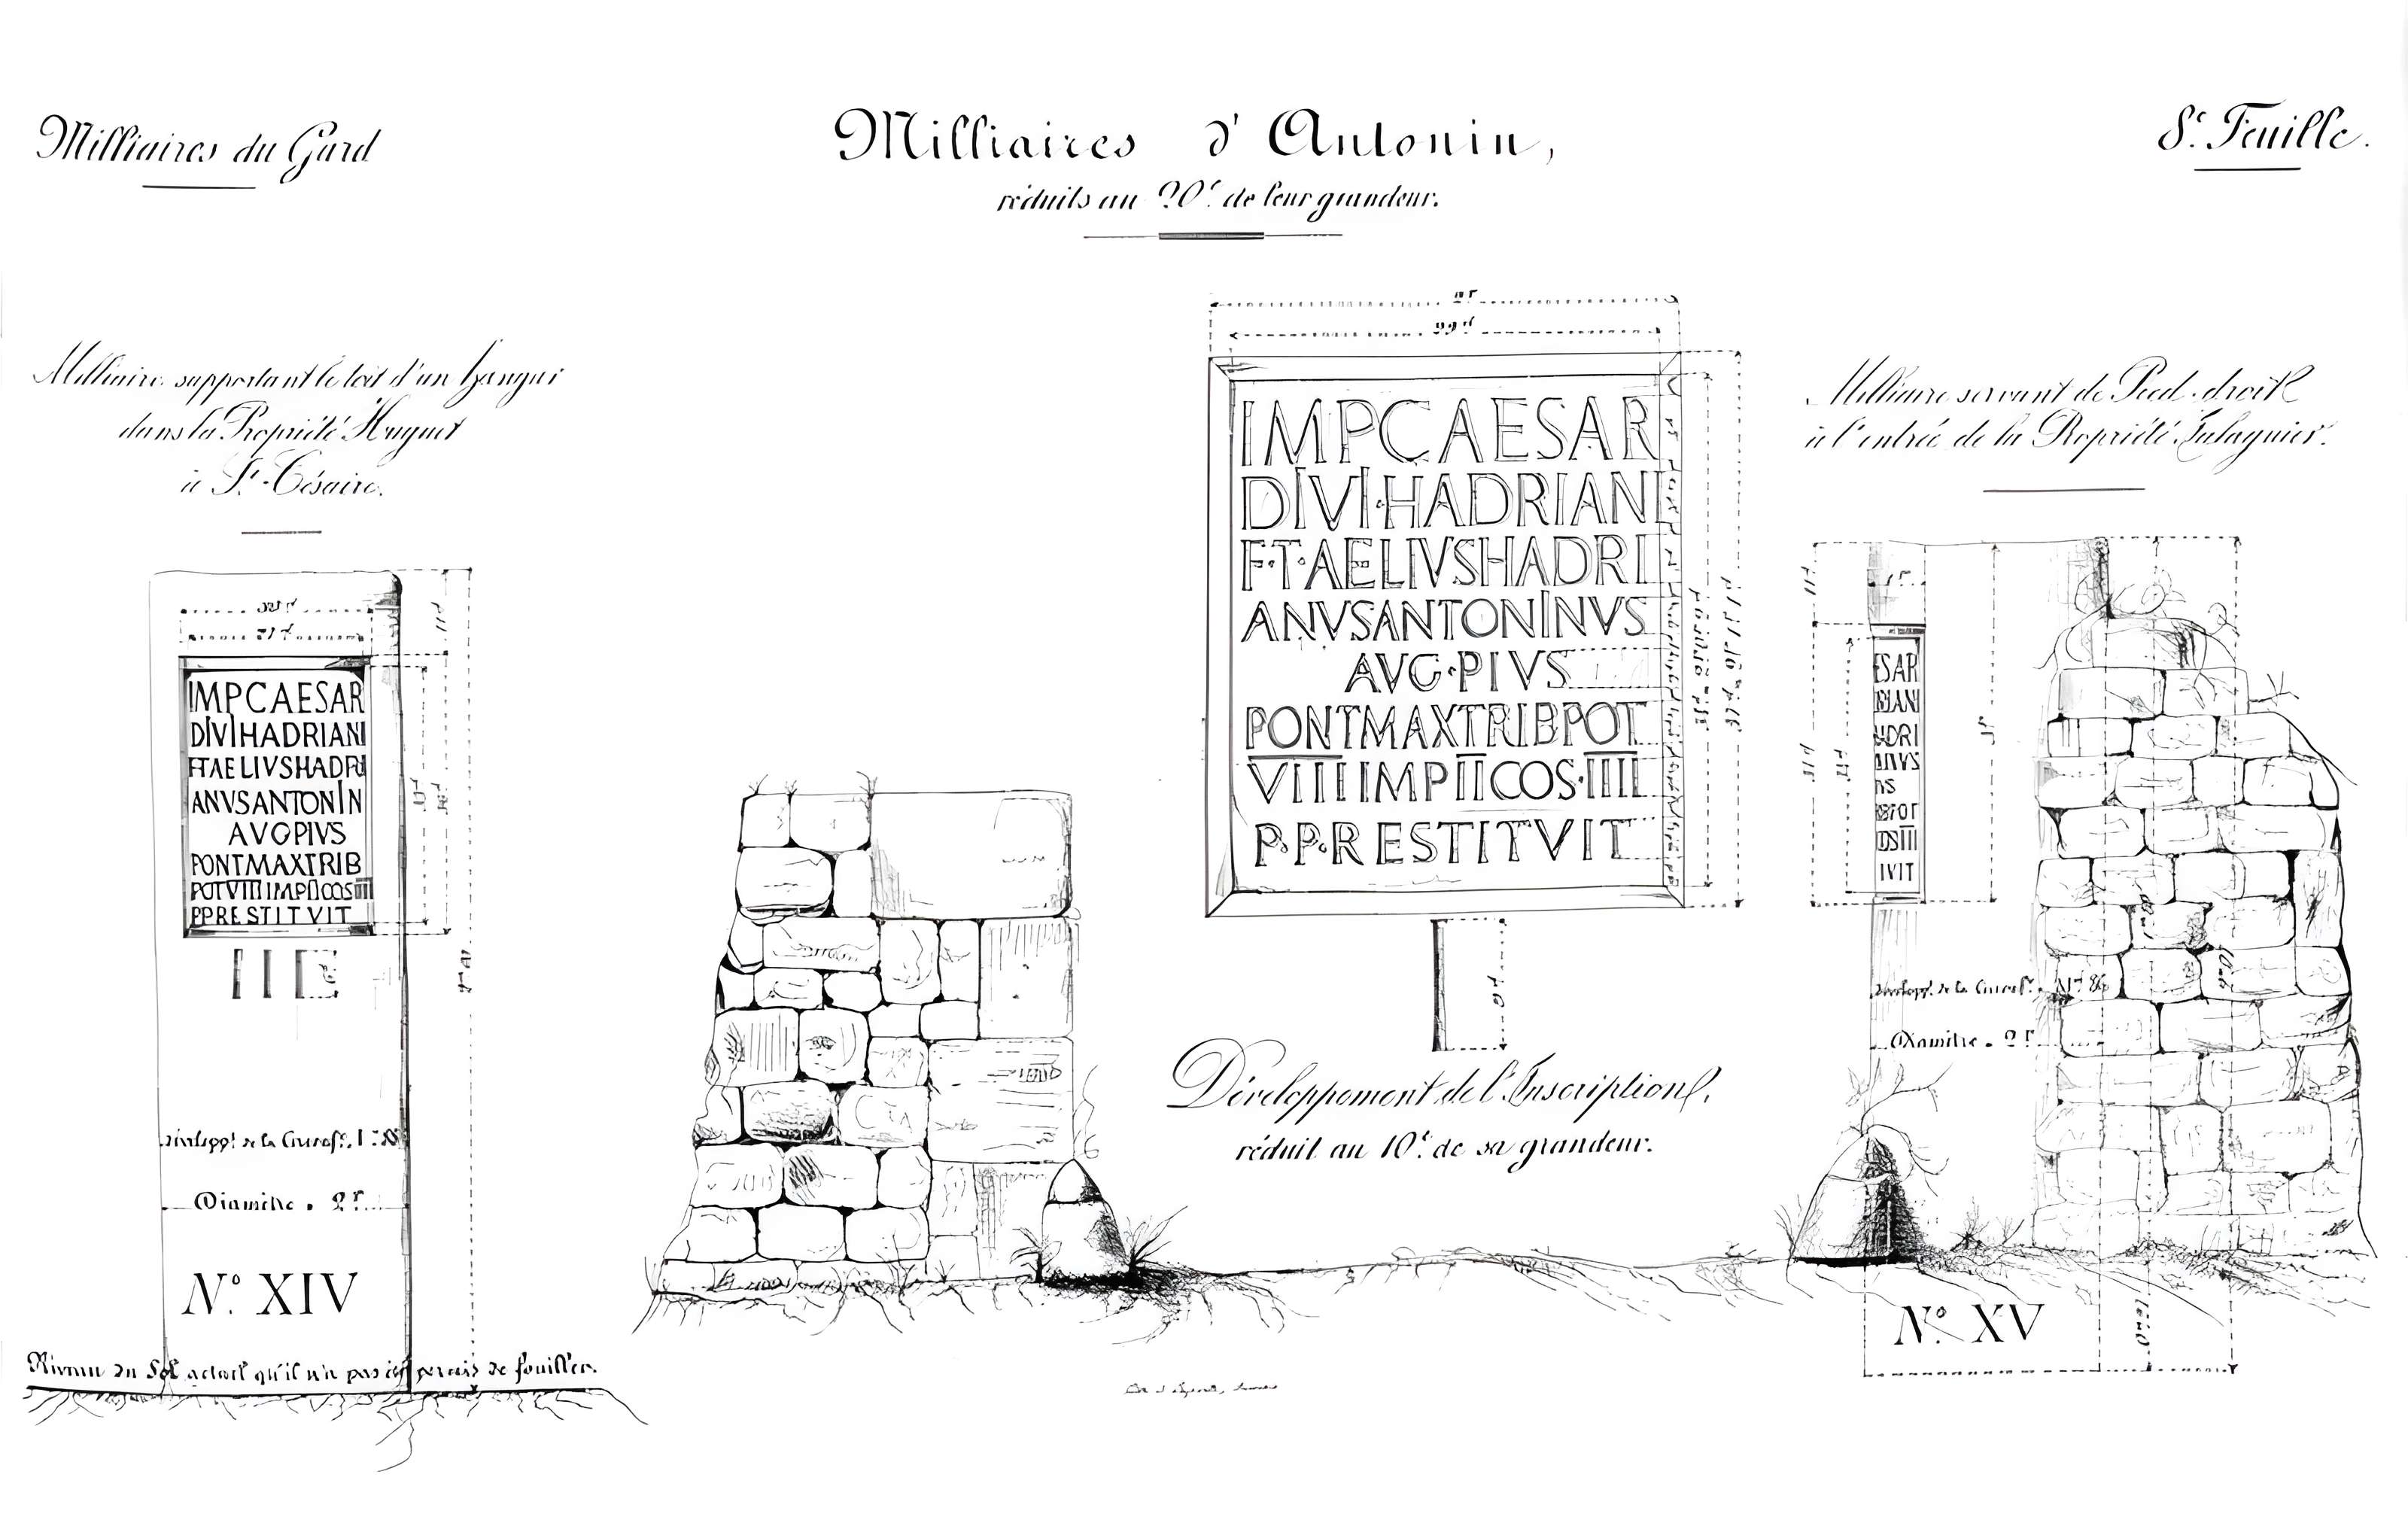 Milliaires du Gard
Milliaires d'Antonin,
réduits au 20e. de leur grandeur.
8e. Feuille.
Milliaire supportant le toit d'un hangar
dans la Propriété Huguet
à St. Césaire.
IMPCAESAR
DIVIHADRIANI
FTAELIVSHADRI
ANVSANTONIN
AVGPIVS
PONTMAXTRIB
POTVIIIIIMPIICOSIIII
PPRESTITVIT
III
développt. de la Circonfce.
Diamètre. 2P.
No. XIV
Niveau du Sol actuel qu'il n'a pas été permis de fouiller.
IMPCAESAR
DIVI·HADRIANI
F·T·AELIVSHADRI
ANVSANTONINVS
AVG·PIVS
PONTMAXTRIBPOT
VIIIIIMPIICOS·IIII
P·P·RESTITVIT
I
Développement de l'Inscription,
réduit au 10e. de sa grandeur.
Milliaire servant de Pied-droit
à l'entrée de la Propriété
ESAR
RIANI
ADRI
INVS
VS
RBPOT
OSIIII
IVIT
développt. de la Circonfce.
Diamètre. 2P.
No. XV